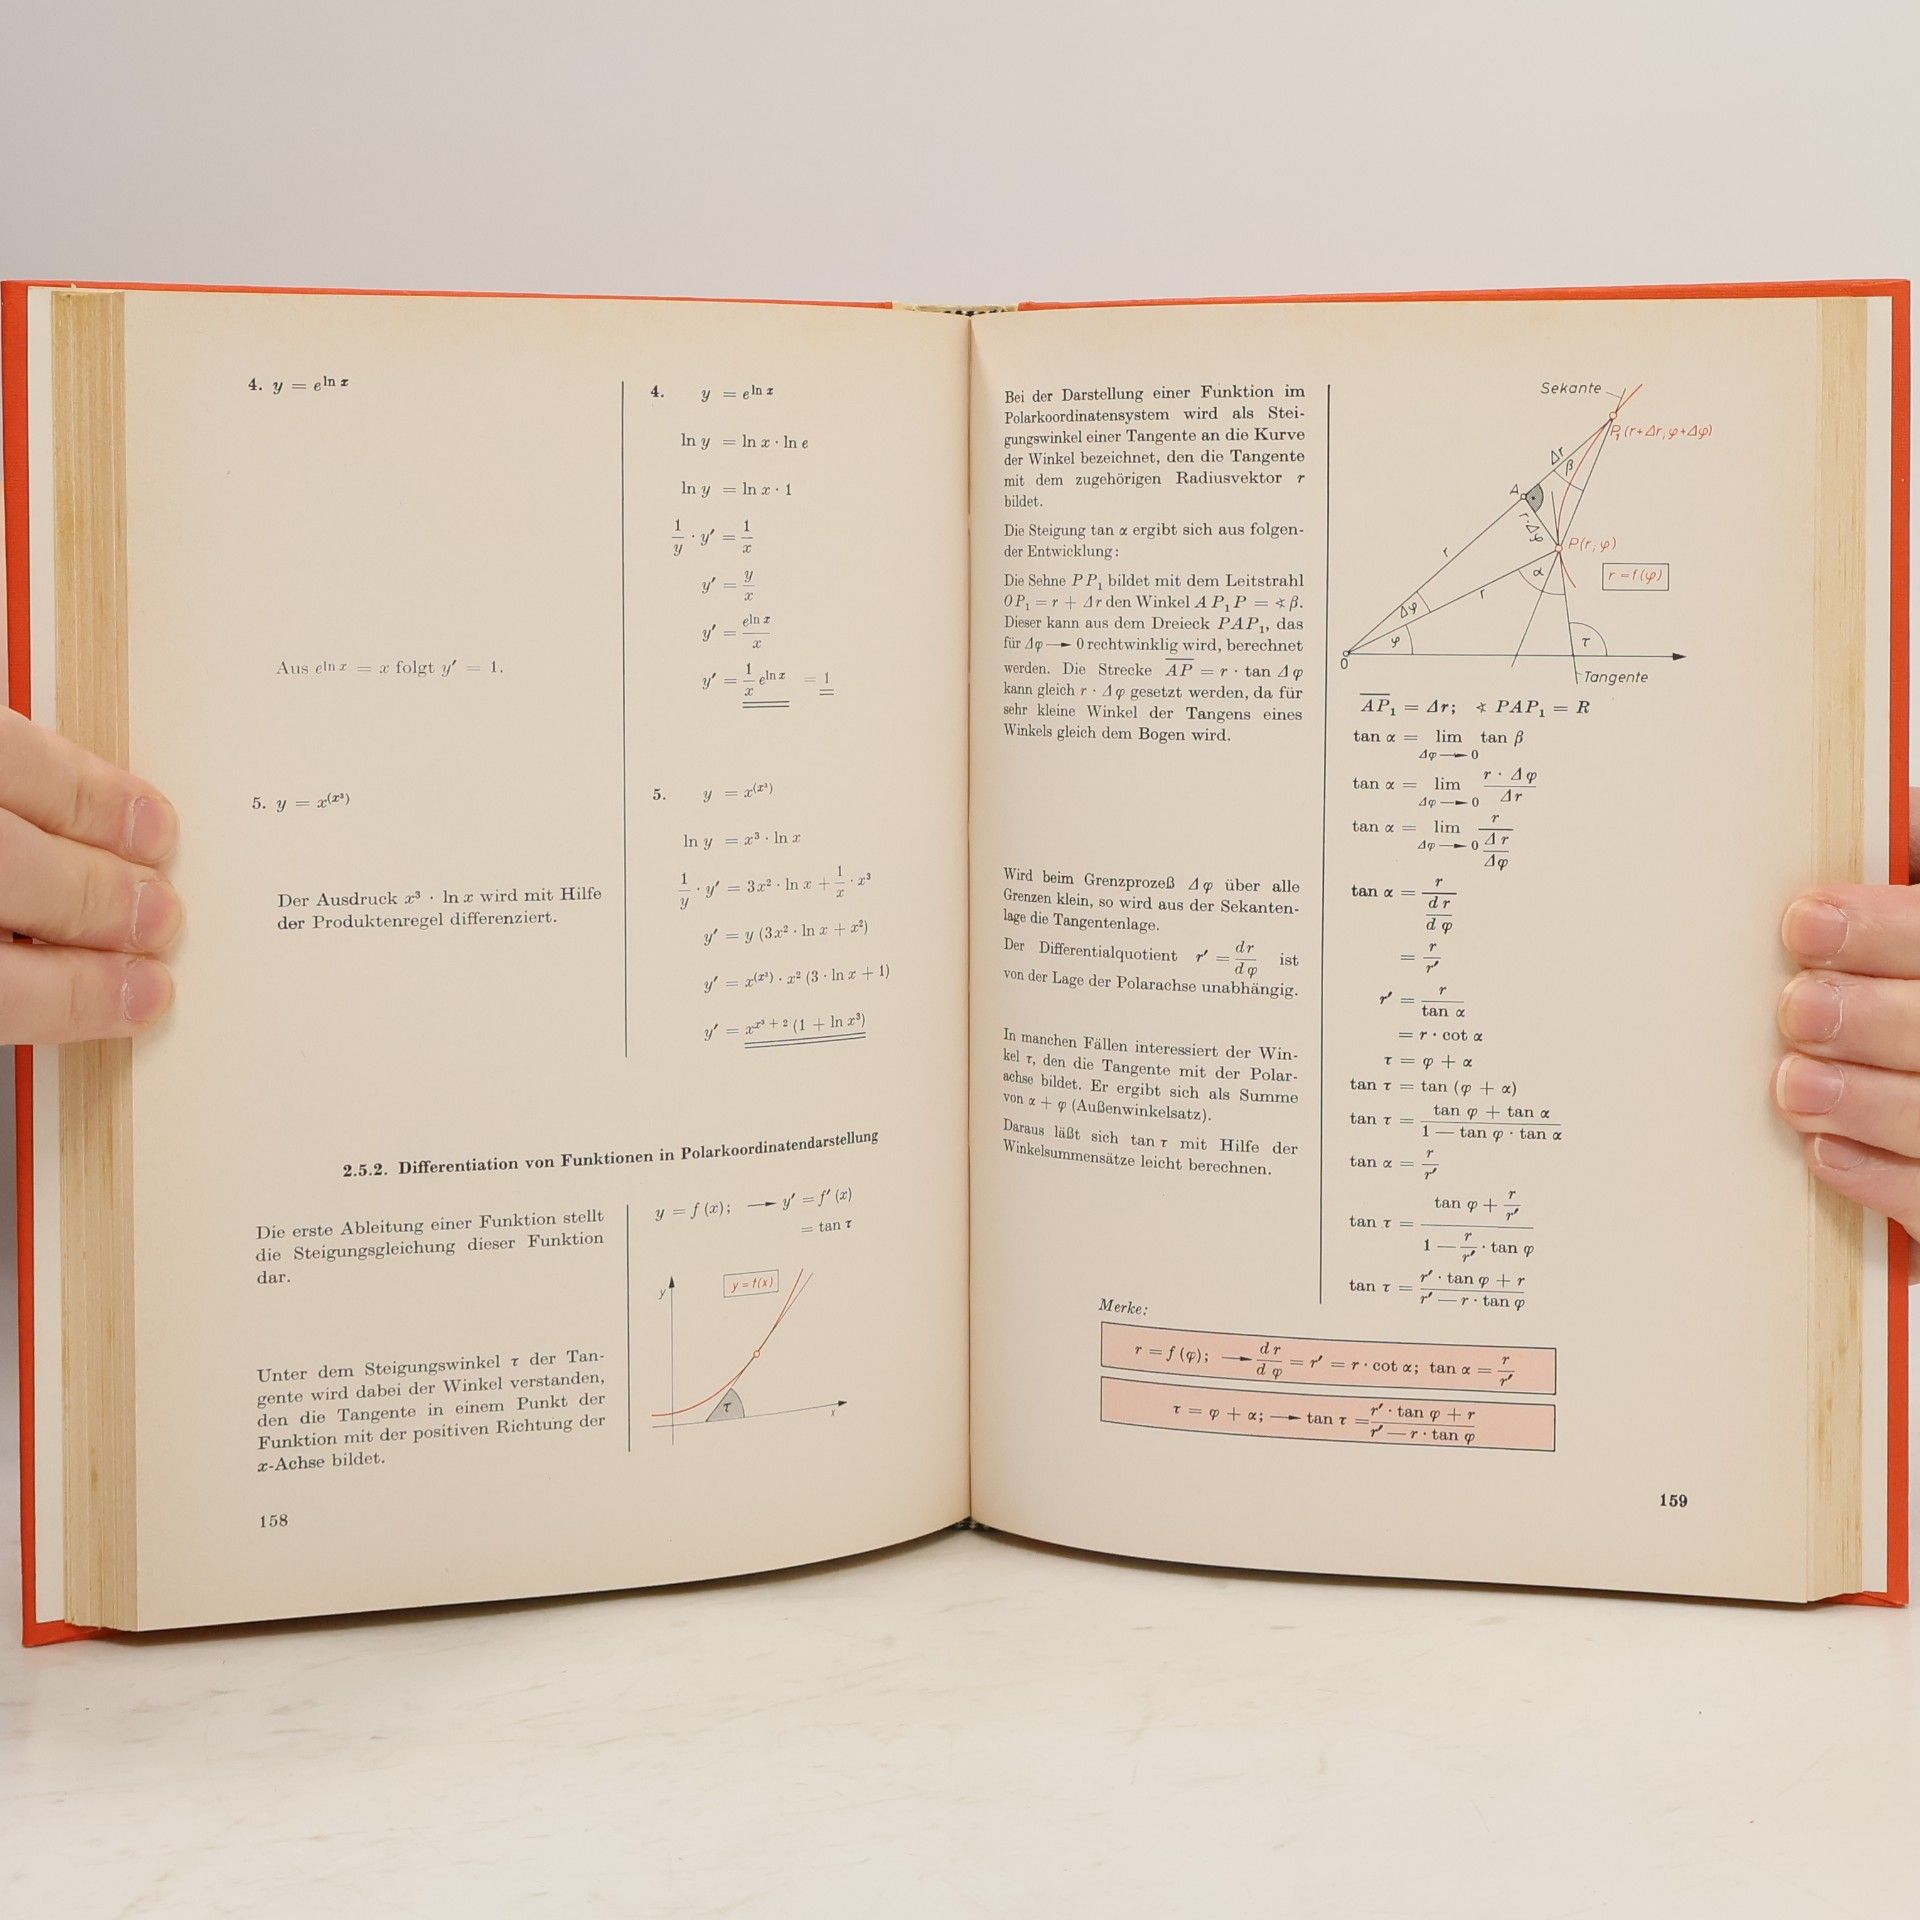 4. y = e^{ln x}
Aus e^{ln x} = x folgt y′ = 1.
5. y = x^{(x³)}
Der Ausdruck x³ · ln x wird mit Hilfe
der Produktenregel differenziert.
4. y = e^{ln x}
ln y = ln x · ln e
ln y = ln x · 1
1/y · y′ = 1/x
y′ = y/x
y′ = e^{ln x}/x
y′ = 1/x e^{ln x} = 1
5. y = x^{(x³)}
ln y = x³ · ln x
1/y · y′ = 3x² · ln x + 1/x · x³
y′ = y (3x² · ln x + x²)
y′ = x^{(x³)} · x² (3 · ln x + 1)
y′ = x^{x³ + 2} (1 + ln x³)
2.5.2. Differentiation von Funktionen in Polarkoordinatendarstellung
Die erste Ableitung einer Funktion stellt
die Steigungsgleichung dieser Funktion
dar.
Unter dem Steigungswinkel τ der Tan-
gente wird dabei der Winkel verstanden,
den die Tangente in einem Punkt der
Funktion mit der positiven Richtung der
x-Achse bildet.
y = f (x); → y′ = f′ (x)
= tan τ
y
y = f(x)
τ
x
158
Bei der Darstellung einer Funktion im
Polarkoordinatensystem wird als Stei-
gungswinkel einer Tangente an die Kurve
der Winkel bezeichnet, den die Tangente
mit dem zugehörigen Radiusvektor r
bildet.
Die Steigung tan α ergibt sich aus folgen-
der Entwicklung:
Die Sehne PP₁ bildet mit dem Leitstrahl
OP₁ = r + Δr den Winkel AP₁P = ∢ β.
Dieser kann aus dem Dreieck PAP₁, das
für Δφ → 0 rechtwinklig wird, berechnet
werden. Die Strecke A̅P̅ = r · tan Δφ
kann gleich r · Δφ gesetzt werden, da für
sehr kleine Winkel der Tangens eines
Winkels gleich dem Bogen wird.
Wird beim Grenzprozeß Δφ über alle
Grenzen klein, so wird aus der Sekanten-
lage die Tangentenlage.
Der Differentialquotient r′ = dr/dφ ist
von der Lage der Polarachse unabhängig.
In manchen Fällen interessiert der Win-
kel τ, den die Tangente mit der Polar-
achse bildet. Er ergibt sich als Summe
von α + φ (Außenwinkelsatz).
Daraus läßt sich tan τ mit Hilfe der
Winkelsummensätze leicht berechnen.
Sekante
P₁(r+Δr; φ+Δφ)
Δr
β
A
r·Δφ
P(r; φ)
r
α
r = f(φ)
r
Δφ
φ
τ
0
Tangente
A̅P̅₁ = Δr; ∢ PAP₁ = R
tan α = lim_{Δφ → 0} tan β
tan α = lim_{Δφ → 0} (r · Δφ)/Δr
tan α = lim_{Δφ → 0} r/(Δr/Δφ)
tan α = r/(dr/dφ)
= r/r′
r′ = r/tan α
= r · cot α
τ = φ + α
tan τ = tan (φ + α)
tan τ = (tan φ + tan α)/(1 — tan φ · tan α)
tan α = r/r′
tan τ = (tan φ + r/r′)/(1 — r/r′ · tan φ)
tan τ = (r′ · tan φ + r)/(r′ — r · tan φ)
Merke:
r = f (φ); → dr/dφ = r′ = r · cot α; tan α = r/r′
τ = φ + α; → tan τ = (r′ · tan φ + r)/(r′ — r · tan φ)
159